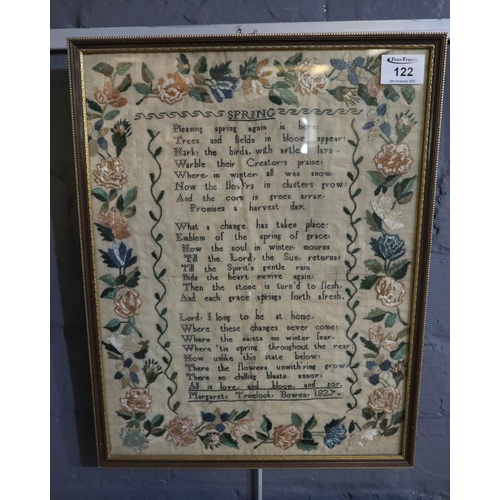 Peter Francis
122
SPRING
Pleasing spring again is here
Trees and fields in bloom appear:
Hark: the birds, with artless lays
Warble their Creators praise:
Where, in winter, all was snow,
Now the flow'rs in clusters grow:
And the corn in green array,
Promises a harvest day.
What a change has taken place:
Emblem of the spring of grace:
How the soul in winter, mourns
'Till the Lord, the Sun, returns:
'Till the Spirit's gentle rain,
Bids the heart revive again:
Then the stone is turn'd to flesh,
And each grace springs forth afresh.
Lord: I long to be at home,
Where these changes never come:
Where the saints no winter fear,
Where 'tis spring throughout the year:
How unlike this state below:
There the flowers unwith'ring grow
There no chilling blasts annoy:
All is love, and bloom, and joy.
Margaret, Bowen, 182